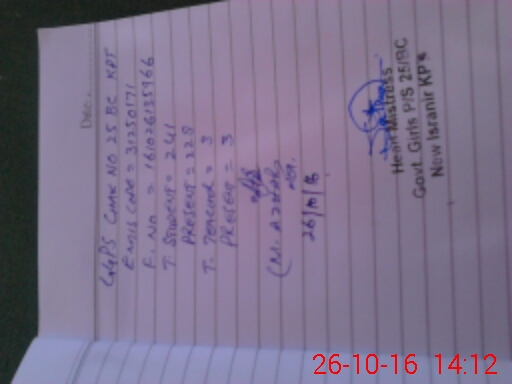 Date:
GGPS CHAK NO 25 BC KPT
EMIS CODE = 31250171
F. NO. = 161026135966
T. STUDENT = 241
PRESENT = 228
T. TEACHER = 3
PRESENT = 3
(M. AZHAR)
26/10/16
Head Mistress
Govt. Girls P/S 25/BC
New Isranir KPT
26-10-16 14:12